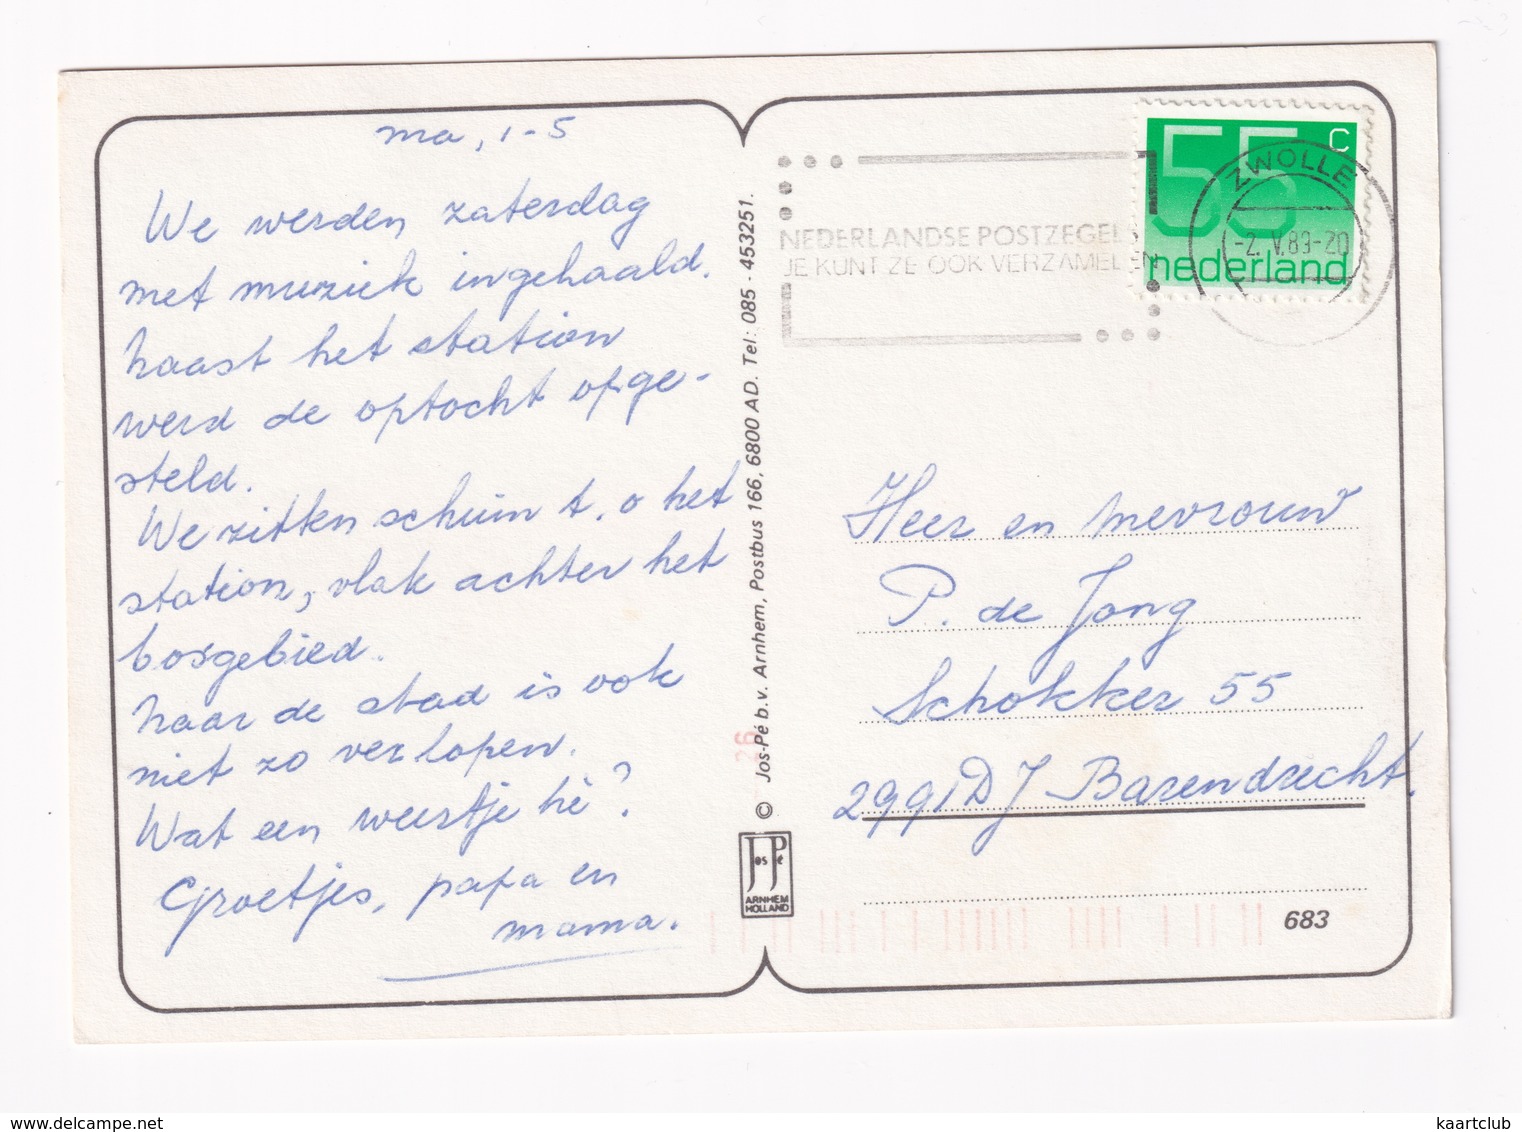 ma, 1-5
We werden zaterdag
met muziek ingehaald.
naast het station
werd de optocht opge-
steld.
We zitten schuin t.o het
station, vlak achter het
bosgebied.
naar de stad is ook
niet zo ver lopen.
Wat een weertje hè?
Groetjes, papa en
mama.
© Jos-Pé b.v. Arnhem, Postbus 166, 6800 AD. Tel: 085 - 453251.
26
Jos Pé
ARNHEM
HOLLAND
NEDERLANDSE POSTZEGELS
JE KUNT ZE OOK VERZAMELEN
55 c
nederland
ZWOLLE
-2.V.89-20
Heer en mevrouw
P. de Jong
Schokker 55
2991 DJ Barendrecht.
683
kaartclub